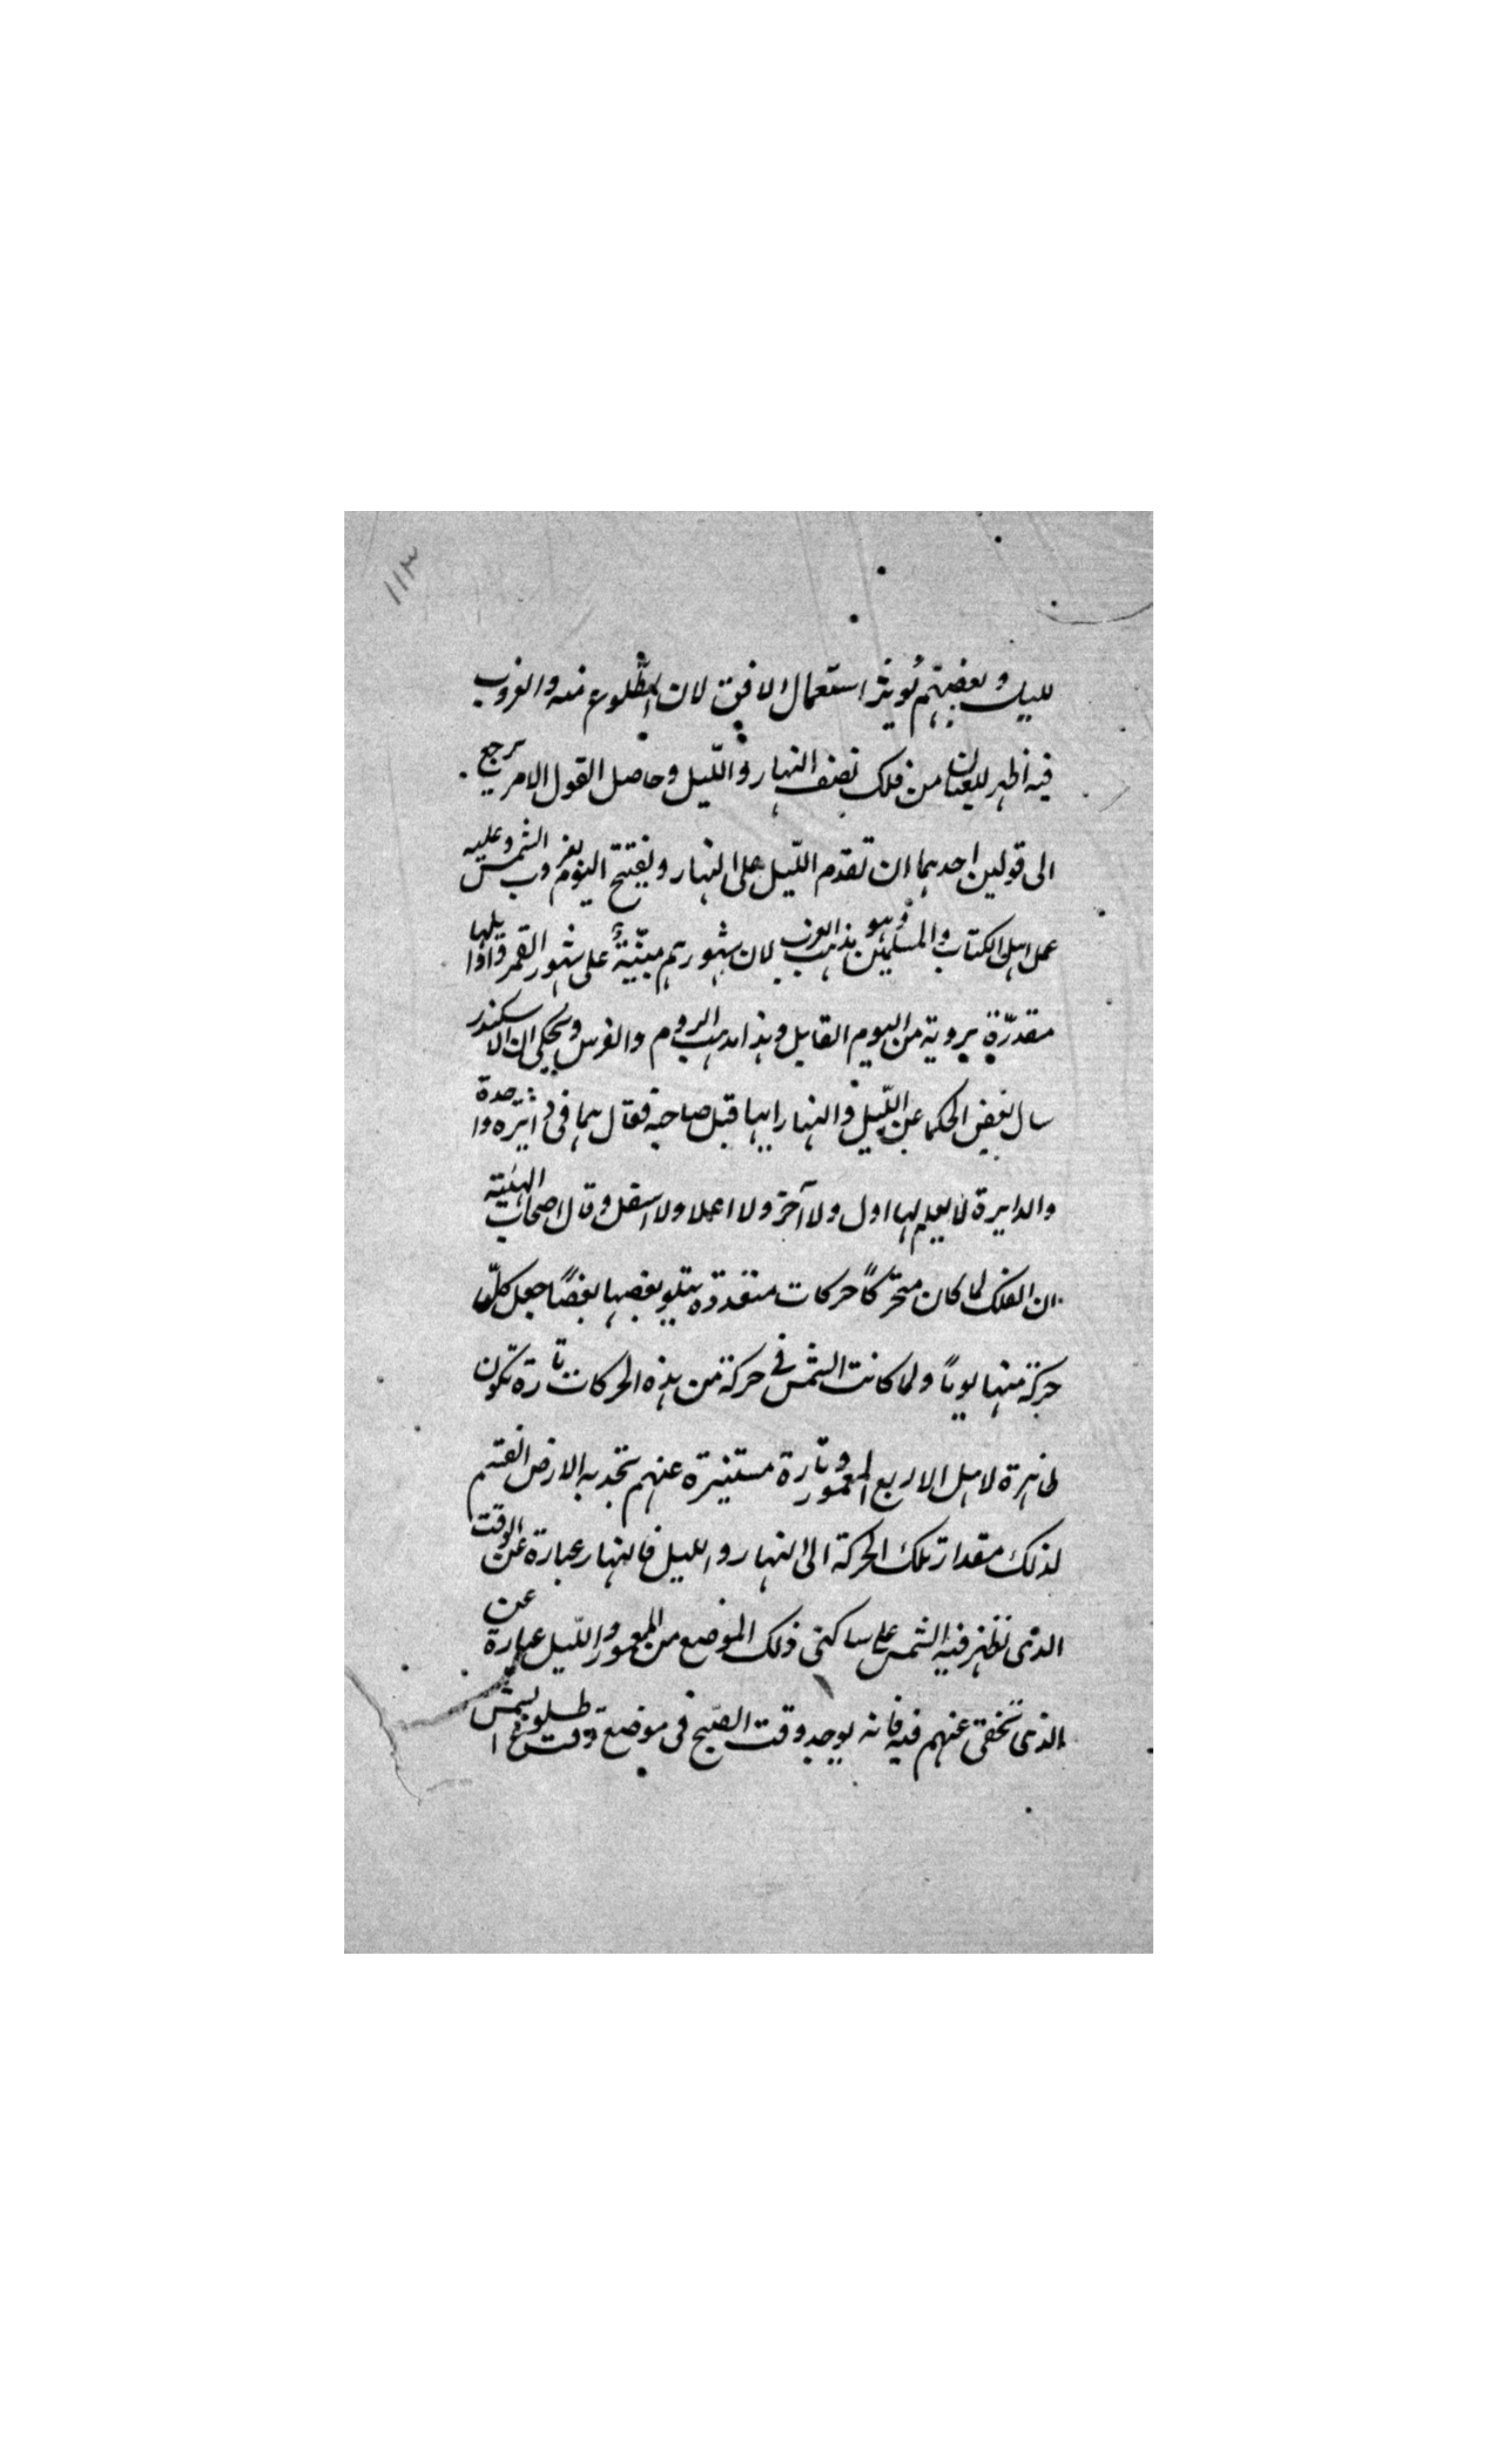 ١١٣
لليل وبعضهم يُؤثر استعمال الافق لان الطّلوع منه والغروب
فيه اظهر للعيان من فلك نصف النهار والّليل وحاصل القول الامر يرجع
الى قولين احدهما ان تقدم اللّيل على النهار ويفتتح اليوم بغروب الشمس وعليه
عمل اهل الكتاب والمسلمين وهو مذهب العرب لان شهورهم مبنّيّة على شهور القمر واذا يلها
مقدّرة بروية من اليوم القابل وهذا مذهب الروم والفرس ويحكى ان الاسكندر
سال بعض الحكما عن اللّيل والنهار ايها قبل صاحبه فقال هما فى دائره واحدة
والدايرة لا يعلم لها اول ولا آخر ولا اعلا ولا اسفل وقال اصحاب الهئية
ان الفلك لما كان متحركًا حركات متعددة يتلو بعضها بعضًا جعل كلّ
حركة منها يومًا ولما كانت الشمس فى حركة من هذه الحركات تارة تكون
ظاهرة لاهل الاربع المعمور وتارة مستتيرة عنهم بتحدبه الارض انقسم
لذلك مقدار تلك الحركة الى النهار والليل فالنهار عبارة عن الوقت
الذى تظهر فيه الشمس على ساكنى ذلك الموضع من المعمور واللّيل عبارة عن
الذى تخفى عنهم فيه فانه يوجد وقت الصّبح فى موضع وقت طلوع الشمس